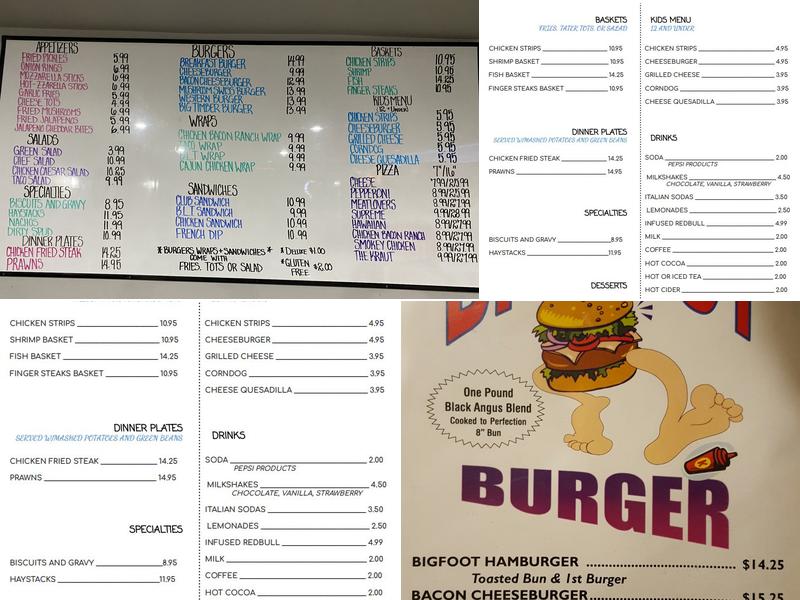 APPETIZERS
FRIED PICKLES 5.99
ONION RINGS 6.99
MOZZARELLA STICKS 6.99
HOT-ZZARELLA STICKS 6.99
GARLIC FRIES 5.99
CHEESE TOTS 4.99
FRIED MUSHROOMS 6.99
FRIED JALAPENOS 5.99
JALAPENO CHEDDAR BITES 6.99
SALADS
GREEN SALAD 3.99
CHEF SALAD 10.99
CHICKEN CAESAR SALAD 10.25
TACO SALAD 9.99
SPECIALTIES
BISCUITS AND GRAVY 8.95
HAYSTACKS 11.95
NACHOS 11.99
DIRTY SPUD 10.99
DINNER PLATES
CHICKEN FRIED STEAK 14.25
PRAWNS 14.95
BURGERS
BREAKFAST BURGER 14.99
CHEESEBURGER 9.99
BACON CHEESEBURGER 12.99
MUSHROOM SWISS BURGER 13.99
WESTERN BURGER 13.99
BIG TIMBER BURGER 13.99
WRAPS
CHICKEN BACON RANCH WRAP 9.99
TACO WRAP 9.99
B.L.T WRAP 9.99
CAJUN CHICKEN WRAP 9.99
SANDWICHES
CLUB SANDWICH 10.99
B.L.T SANDWICH 9.99
CHICKEN SANDWICH 10.99
FRENCH DIP 10.99
* BURGERS, WRAPS + SANDWICHES *
COME WITH
FRIES, TOTS OR SALAD
* DELUXE $1.00
* GLUTEN FREE $2.00
BASKETS
CHICKEN STRIPS 10.95
SHRIMP 10.95
FISH 14.25
FINGER STEAKS 10.95
KIDS MENU
(12 + Under)
CHICKEN STRIPS 5.95
CHEESEBURGER 5.95
GRILLED CHEESE 5.95
CORNDOG 5.95
CHEESE QUESADILLA 5.95
PIZZA 7"/16"
CHEESE 7.99/25.99
PEPPERONI 8.99/27.99
MEATLOVERS
SUPREME
HAWAIIAN
CHICKEN BACON RANCH
SMOKEY CHICKEN
THE KRAUT
BASKETS
FRIES, TATER TOTS, OR SALAD
CHICKEN STRIPS 10.95
SHRIMP BASKET 10.95
FISH BASKET 14.25
FINGER STEAKS BASKET 10.95
DINNER PLATES
SERVED W/MASHED POTATOES AND GREEN BEANS
CHICKEN FRIED STEAK 14.25
PRAWNS 14.95
SPECIALTIES
BISCUITS AND GRAVY 8.95
HAYSTACKS 11.95
DESSERTS
KIDS MENU
12 AND UNDER
CHICKEN STRIPS 4.95
CHEESEBURGER 4.95
GRILLED CHEESE 3.95
CORNDOG 3.95
CHEESE QUESADILLA 3.95
DRINKS
SODA 2.00
PEPSI PRODUCTS
MILKSHAKES 4.50
CHOCOLATE, VANILLA, STRAWBERRY
ITALIAN SODAS 3.50
LEMONADES 2.50
INFUSED REDBULL 4.99
MILK 2.00
COFFEE 2.00
HOT COCOA 2.00
HOT OR ICED TEA 2.00
HOT CIDER 2.00
CHICKEN STRIPS 10.95
SHRIMP BASKET 10.95
FISH BASKET 14.25
FINGER STEAKS BASKET 10.95
DINNER PLATES
SERVED W/MASHED POTATOES AND GREEN BEANS
CHICKEN FRIED STEAK 14.25
PRAWNS 14.95
SPECIALTIES
BISCUITS AND GRAVY 8.95
HAYSTACKS 11.95
CHICKEN STRIPS 4.95
CHEESEBURGER 4.95
GRILLED CHEESE 3.95
CORNDOG 3.95
CHEESE QUESADILLA 3.95
DRINKS
SODA 2.00
PEPSI PRODUCTS
MILKSHAKES 4.50
CHOCOLATE, VANILLA, STRAWBERRY
ITALIAN SODAS 3.50
LEMONADES 2.50
INFUSED REDBULL 4.99
MILK 2.00
COFFEE 2.00
HOT COCOA 2.00
One Pound
Black Angus Blend
Cooked to Perfection
8" Bun
BURGER
BIGFOOT HAMBURGER $14.25
Toasted Bun & 1st Burger
BACON CHEESEBURGER $15.25